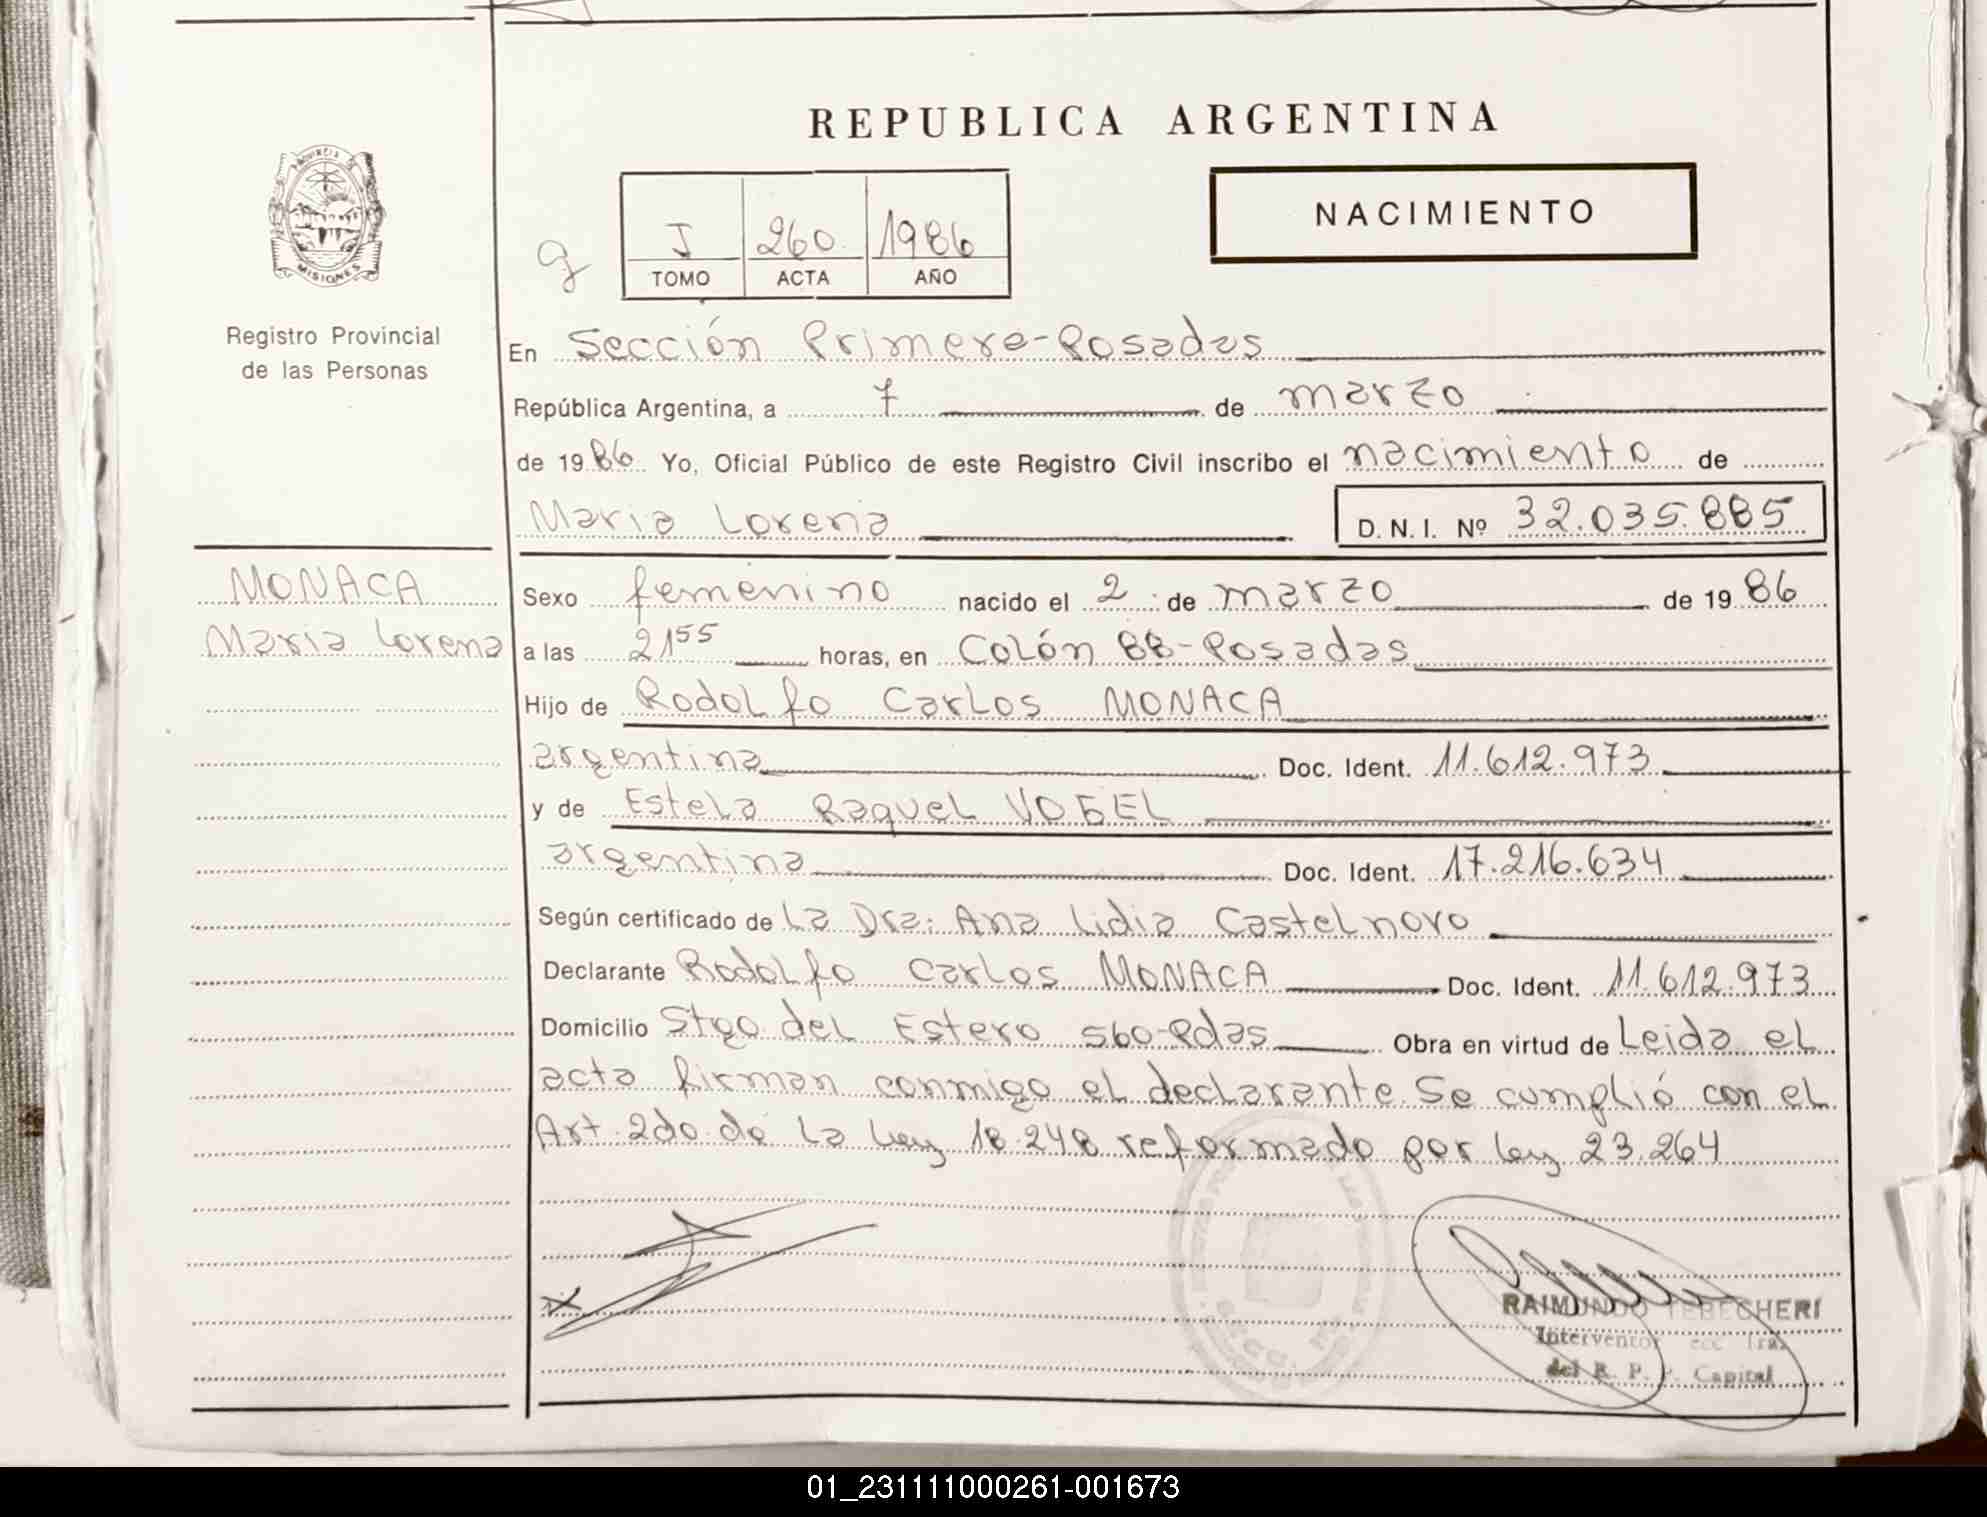 REPUBLICA ARGENTINA
PROVINCIA DE
MISIONES
Registro Provincial
de las Personas
J 260 1986
TOMO ACTA AÑO
NACIMIENTO
En Sección Primera-Posadas
República Argentina, a 7 de marzo
de 1986 Yo, Oficial Público de este Registro Civil inscribo el nacimiento de
Maria Lorena D. N. I. Nº 32.035.885
MONACA
Maria Lorena
Sexo femenino nacido el 2 de marzo de 1986
a las 21 55 horas, en Colón 88-Posadas
Hijo de Rodolfo Carlos MONACA
argentina Doc. Ident. 11.612.973
y de Estela Raquel VOGEL
argentina Doc. Ident. 17.216.634
Según certificado de La Dra: Ana Lidia Castelnovo
Declarante Rodolfo Carlos MONACA Doc. Ident. 11.612.973
Domicilio Stgo. del Estero 560-Pdas Obra en virtud de Leida el
acta firman conmigo el declarante. Se cumplió con el
Art. 2do. de la Ley 18.248 reformado por ley 23.264
RAIMUNDO TEBECHERI
Interventor
del R. P. P. Capital
01_231111000261-001673